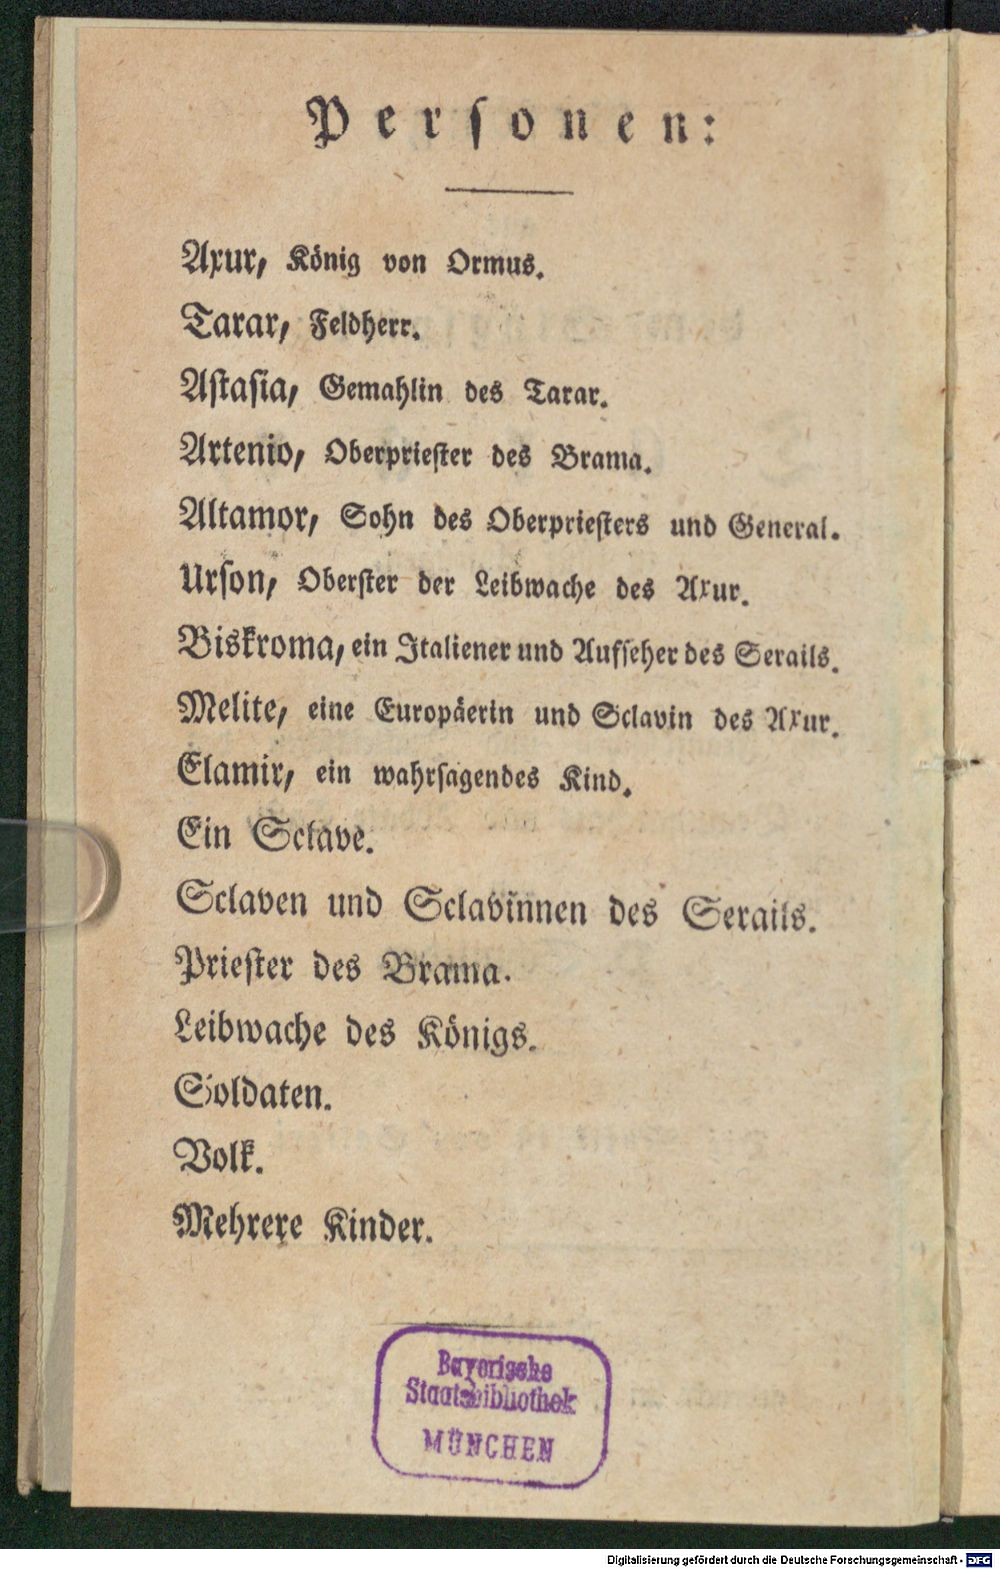 Personen:
Axur, König von Ormus.
Tarar, Feldherr.
Astasia, Gemahlin des Tarar.
Artenio, Oberpriester des Brama.
Altamor, Sohn des Oberpriesters und General.
Urson, Oberster der Leibwache des Axur.
Biskroma, ein Italiener und Aufseher des Serails.
Melite, eine Europäerin und Sclavin des Axur.
Elamir, ein wahrsagendes Kind.
Ein Sclave.
Sclaven und Sclavinnen des Serails.
Priester des Brama.
Leibwache des Königs.
Soldaten.
Volk.
Mehrere Kinder.
Bayerische
Staatsbibliothek
MÜNCHEN
Digitalisierung gefördert durch die Deutsche Forschungsgemeinschaft - DFG